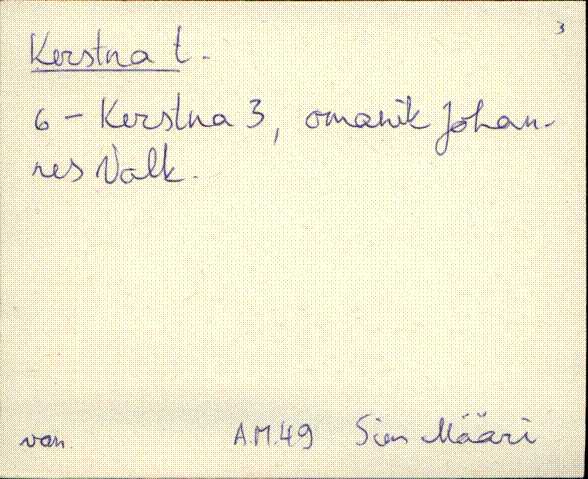 3
Kerstna t.
6 - Kerstna 3, omanik Johan-
nes Valk.
van. A.M.49 Siim Määri